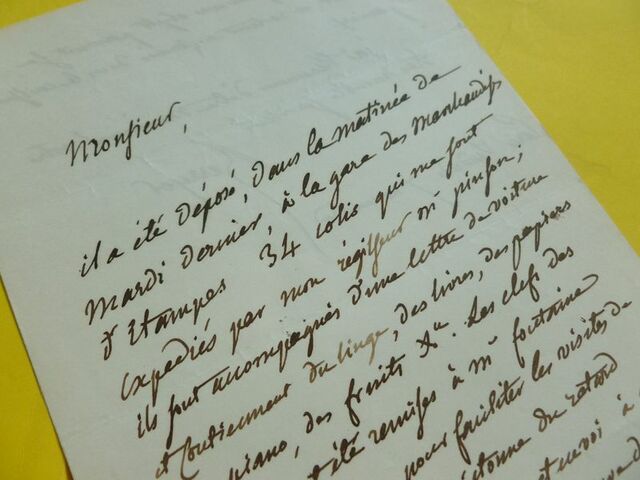 Monsieur,
il a été déposé, dans la matinée de
Mardi dernier, à la gare des Marchandises
d'Etampes 34 colis qui me sont
expediés par mon régisseur mr pinson;
ils sont accompagnés d'une lettre de voiture
et contiennent du linge, des livres, des papiers
piano, des fruits &a. Les clefs des
été remises à mr fontaine
pour faciliter les visites de
étonne du retard